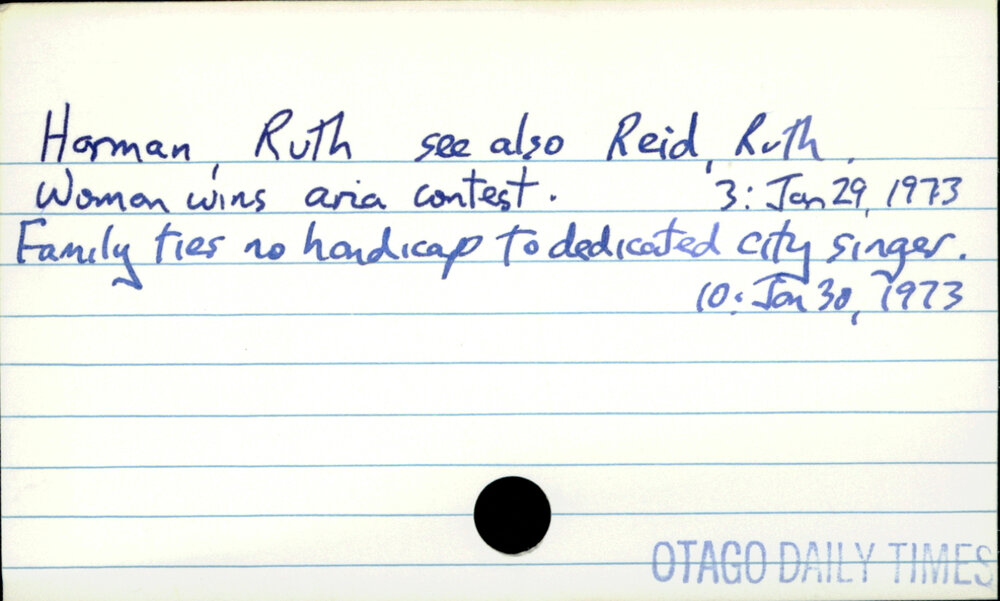 Harman, Ruth see also Reid, Ruth.
Woman wins aria contest. 3: Jan 29, 1973
Family ties no handicap to dedicated city singer.
10: Jan 30, 1973
OTAGO DAILY TIMES